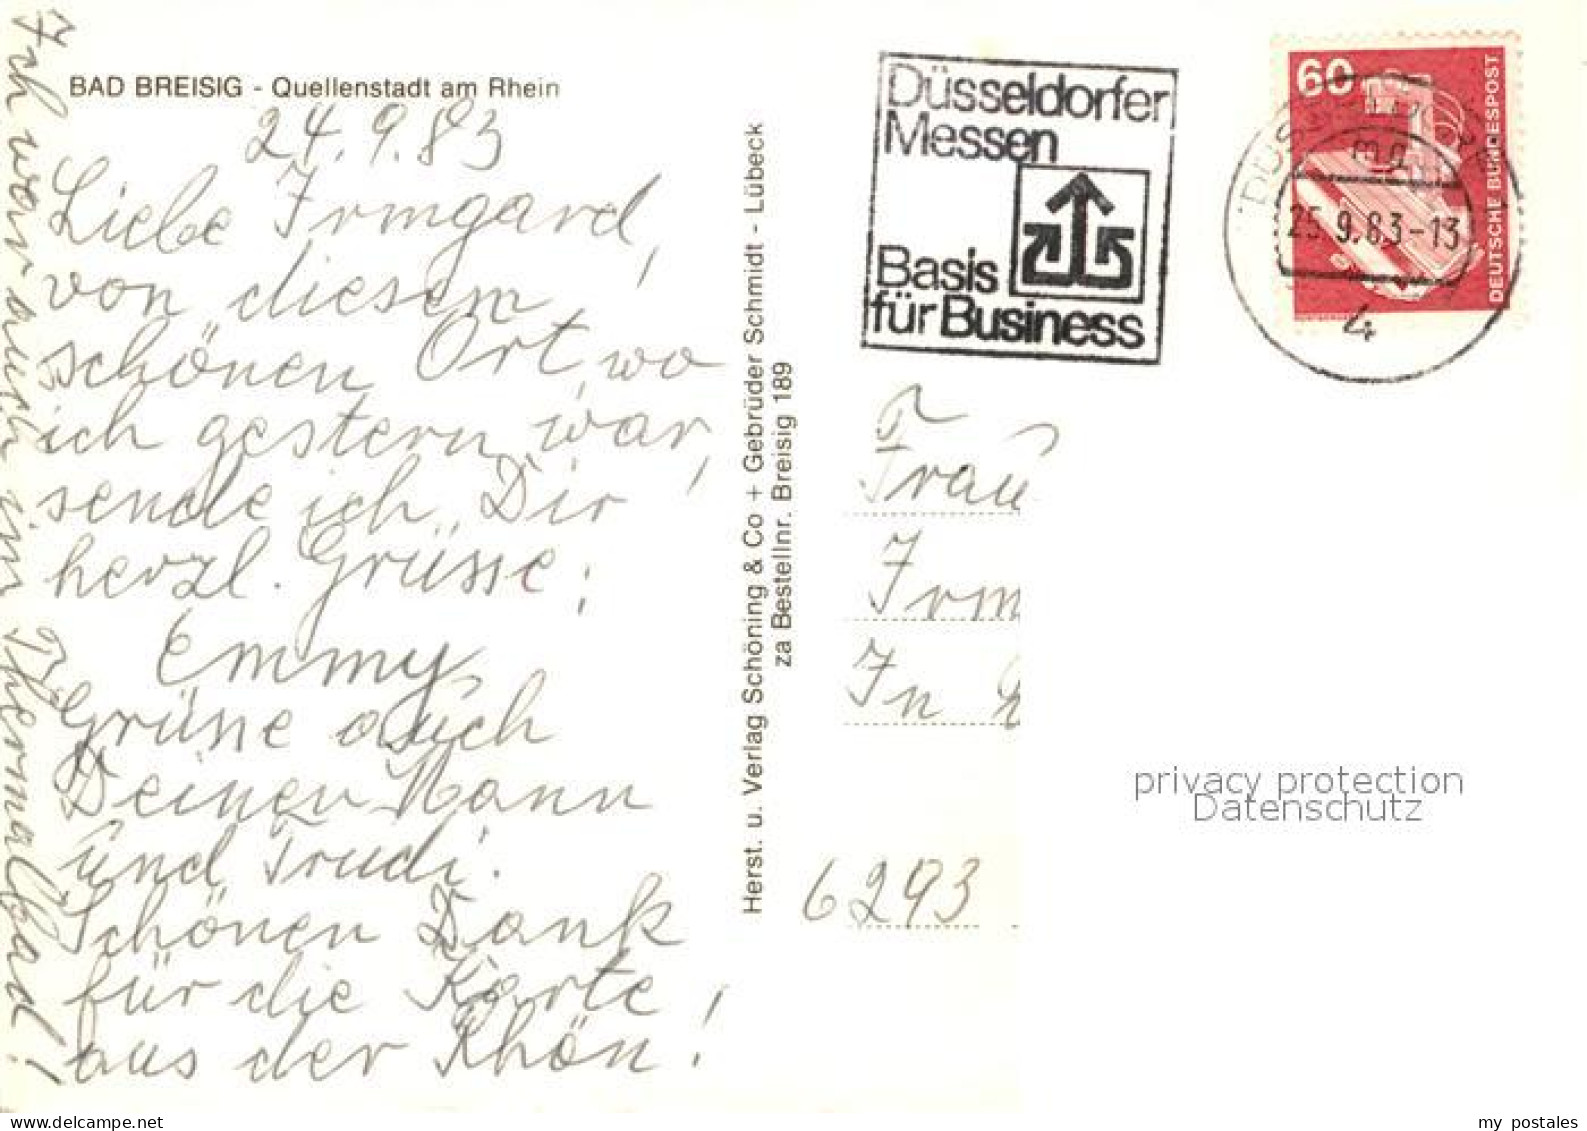 BAD BREISIG - Quellenstadt am Rhein
24.9.83
Liebe Irmgard,
von diesem
schönen Ort, wo
ich gestern war,
sende ich Dir
herzl. Grüsse;
Emmy
Grüsse auch
Deinen Mann
und Trudi.
Schönen Dank
für die Karte
aus der Rhön!
Ich war auch im Thermalbad!
Herst. u. Verlag Schöning & Co + Gebrüder Schmidt - Lübeck
za Bestellnr. Breisig 189
Düsseldorfer
Messen
Basis
für Business
60
DEUTSCHE BUNDESPOST
mq
25.9.83-13
4
Frau
Irm
In
6293
privacy protection
Datenschutz
my postales